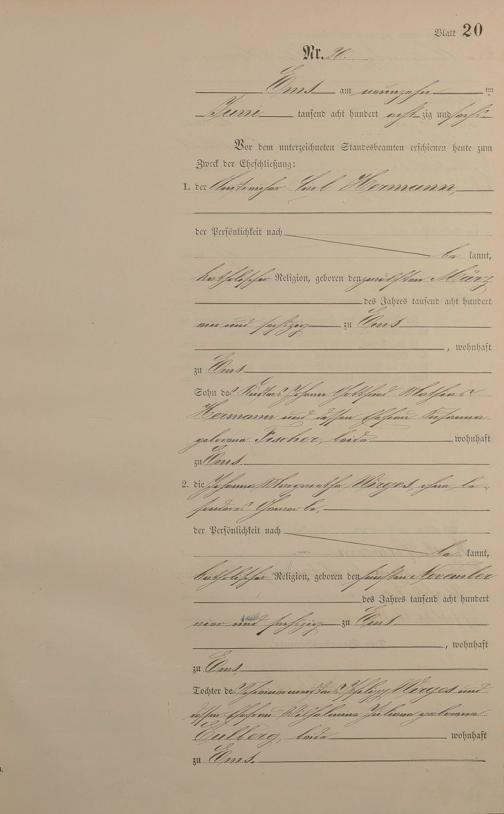 Blatt 20
Nr. 20.
Ems am neunzehn ten
Juni tausend acht hundert achtzig und sechs
Vor dem unterzeichneten Standesbeamten erschienen heute zum
Zweck der Eheschließung:
1. der Carl Hermann,
der Persönlichkeit nach
be kannt,
katholischer Religion, geboren den März
des Jahres tausend acht hundert
ein und sechszig zu Ems
, wohnhaft
zu Ems
Sohn des Johann Gottfried Mathias
Hermann und dessen Ehefrau Susanna
geborene Fischer, beide wohnhaft
zu Ems
2. die Johanna Margaretha Wirges, ohne be-
sonderes Gewerbe,
der Persönlichkeit nach
be kannt,
katholischer Religion, geboren den fünften November
des Jahres tausend acht hundert
vier und sechszig zu Ems
, wohnhaft
zu Ems
Tochter des Philipp Wirges und
dessen Ehefrau Wilhelmine Juliane geborene
beide wohnhaft
zu Ems.